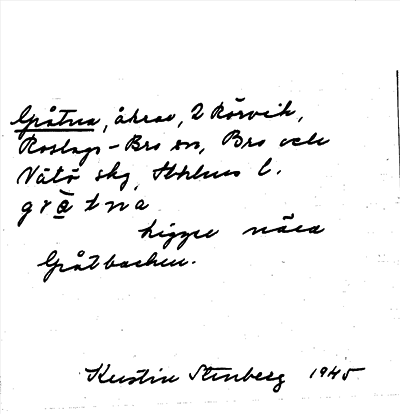 Gråtna, åkrar, 2 Rörvik,
Roslags-Bro sn, Bro och
Vätö skg, Sthlms l.
grätna
ligger nära
Gråtbacken.
Kerstin Stenberg 1945